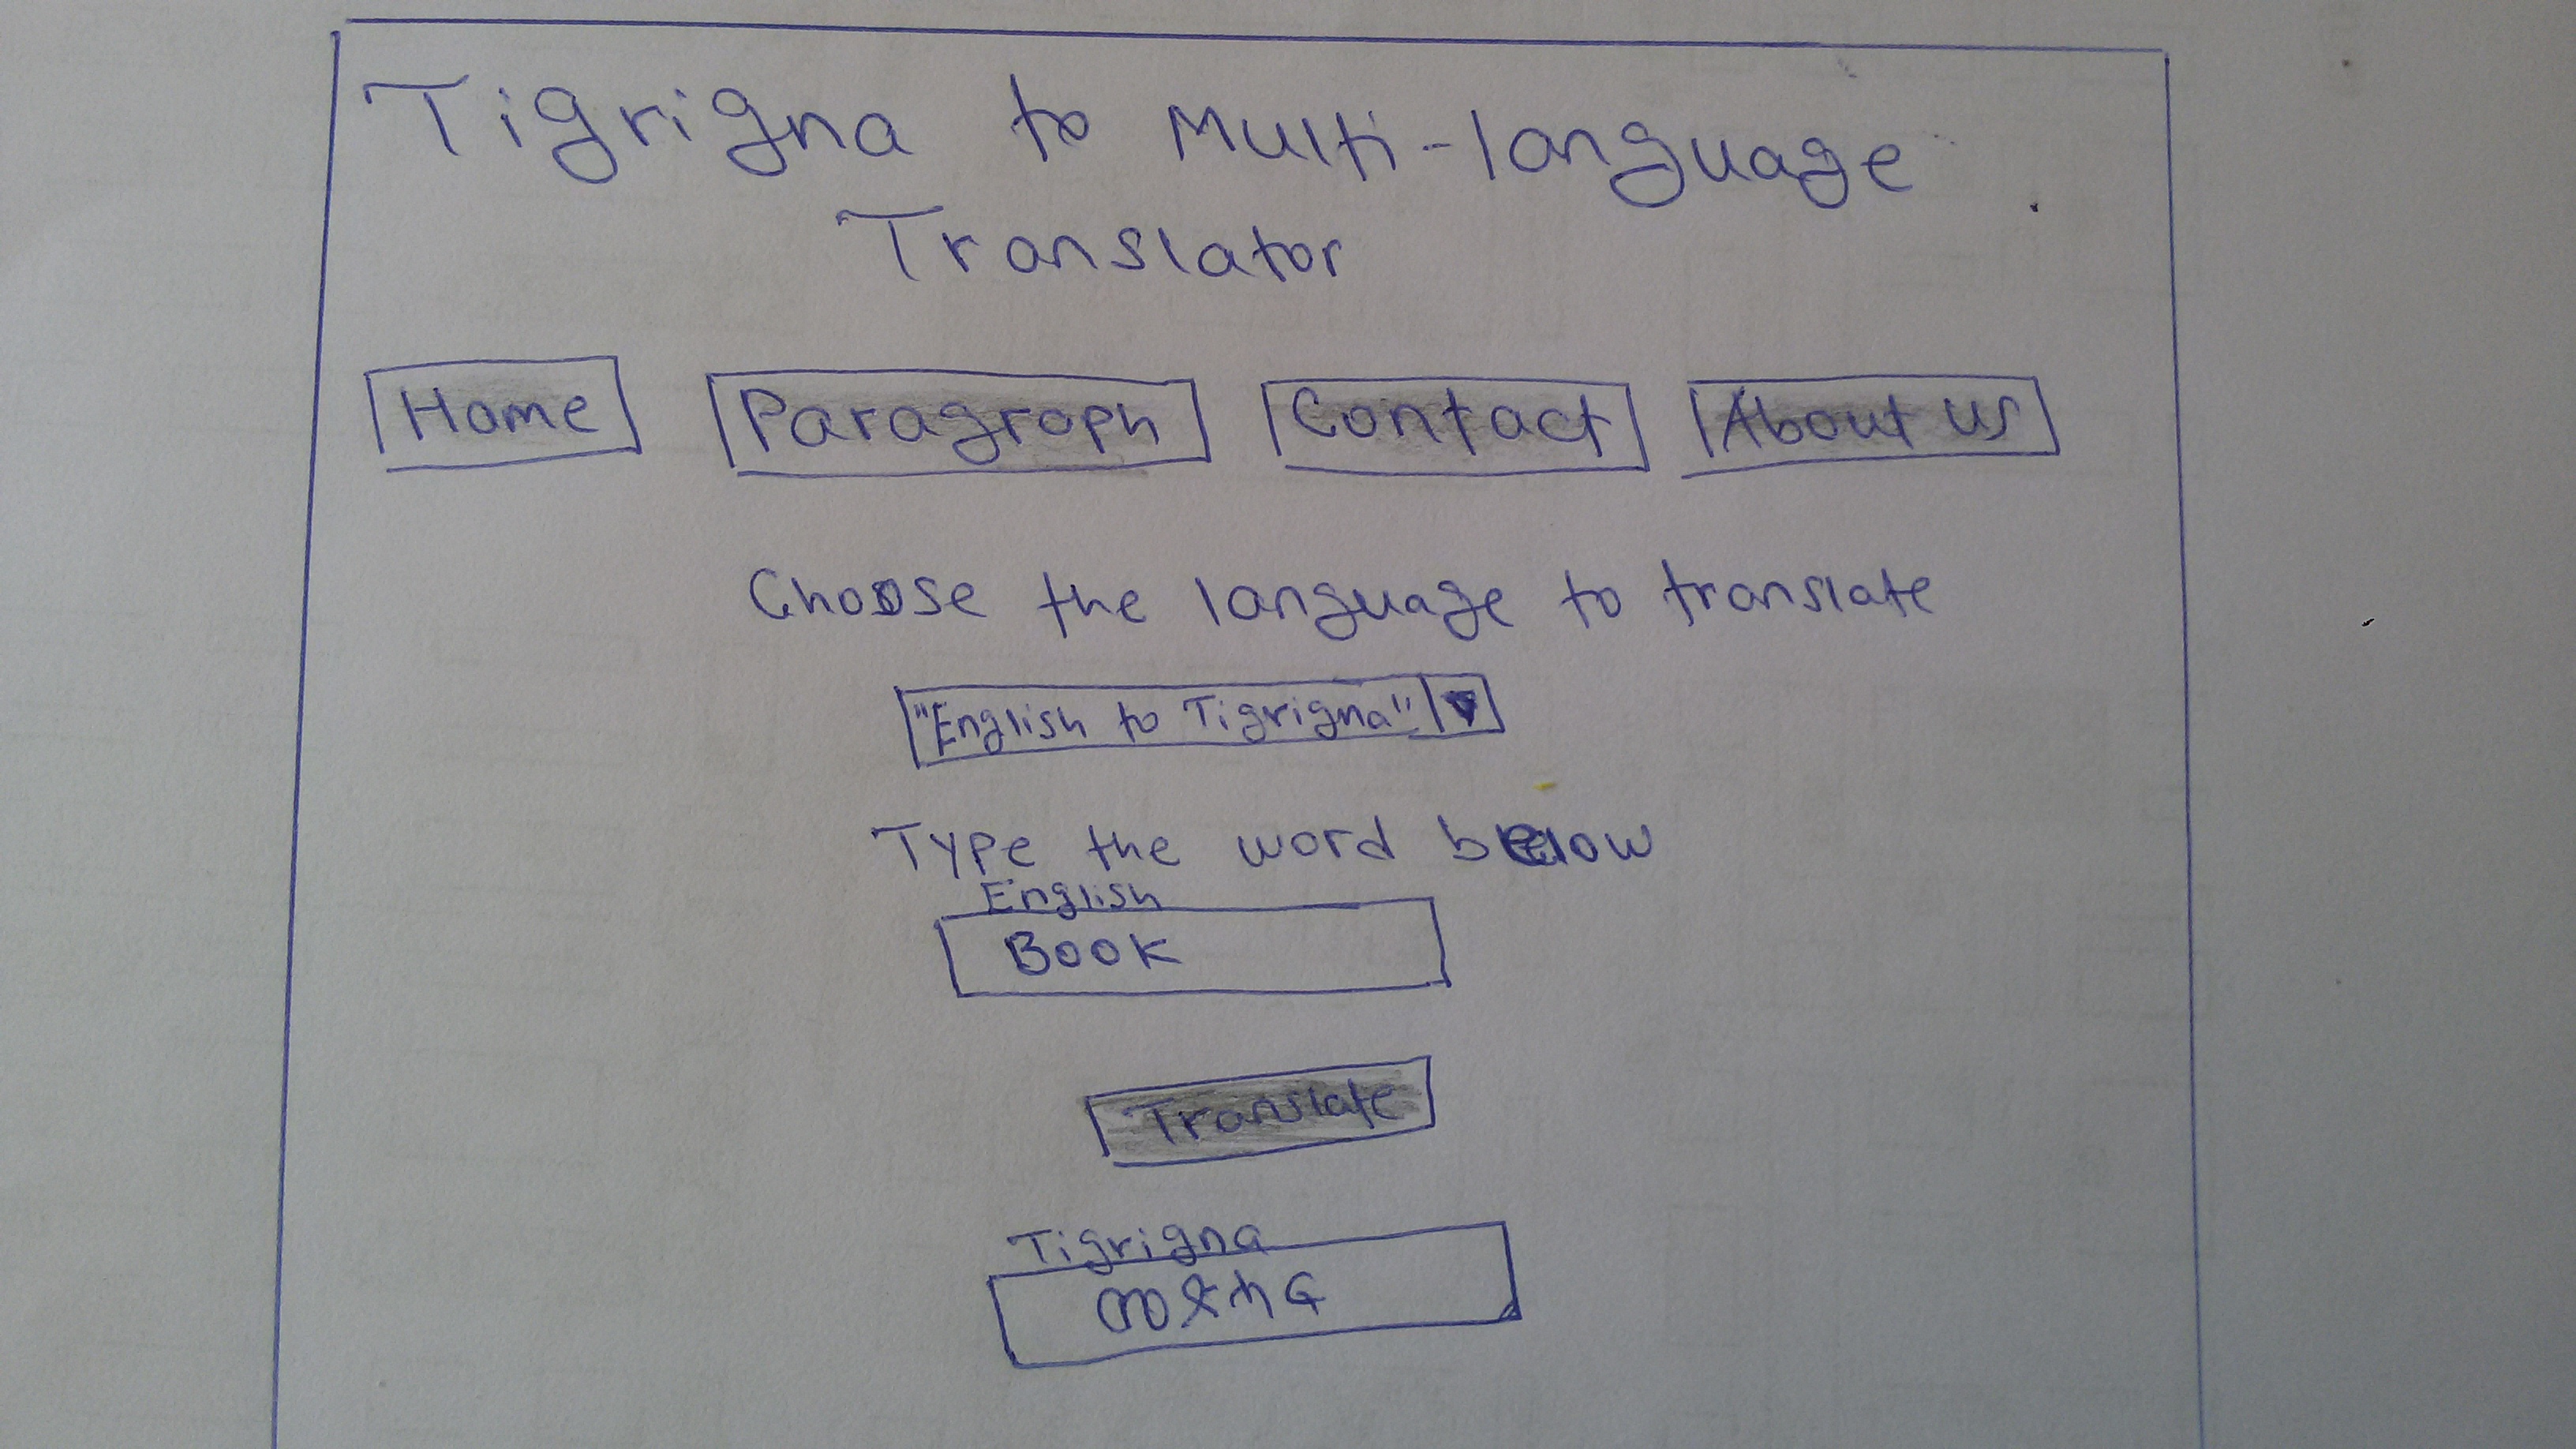 Tigrigna to Multi-language
Translator
Home Paragraph Contact About us
Choose the language to translate
"English to Tigrigna"
Type the word below
English
Book
Translate
Tigrigna
መጽሓፍ